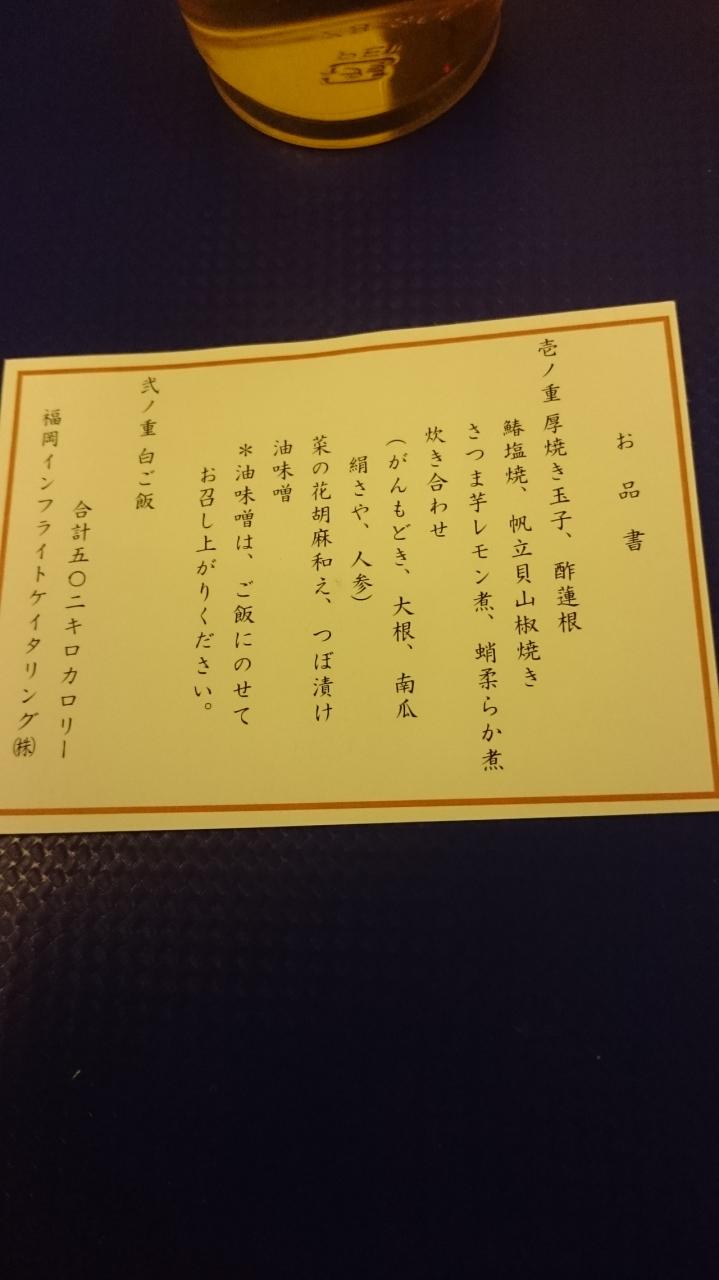 お品書
壱ノ重 厚焼き玉子、酢蓮根
鰆塩焼、帆立貝山椒焼き
さつま芋レモン煮、蛸柔らか煮
炊き合わせ
（がんもどき、大根、南瓜
絹さや、人参）
菜の花胡麻和え、つぼ漬け
油味噌
＊油味噌は、ご飯にのせて
お召し上がりください。
弐ノ重 白ご飯
合計五〇二キロカロリー
福岡インフライトケイタリング㈱